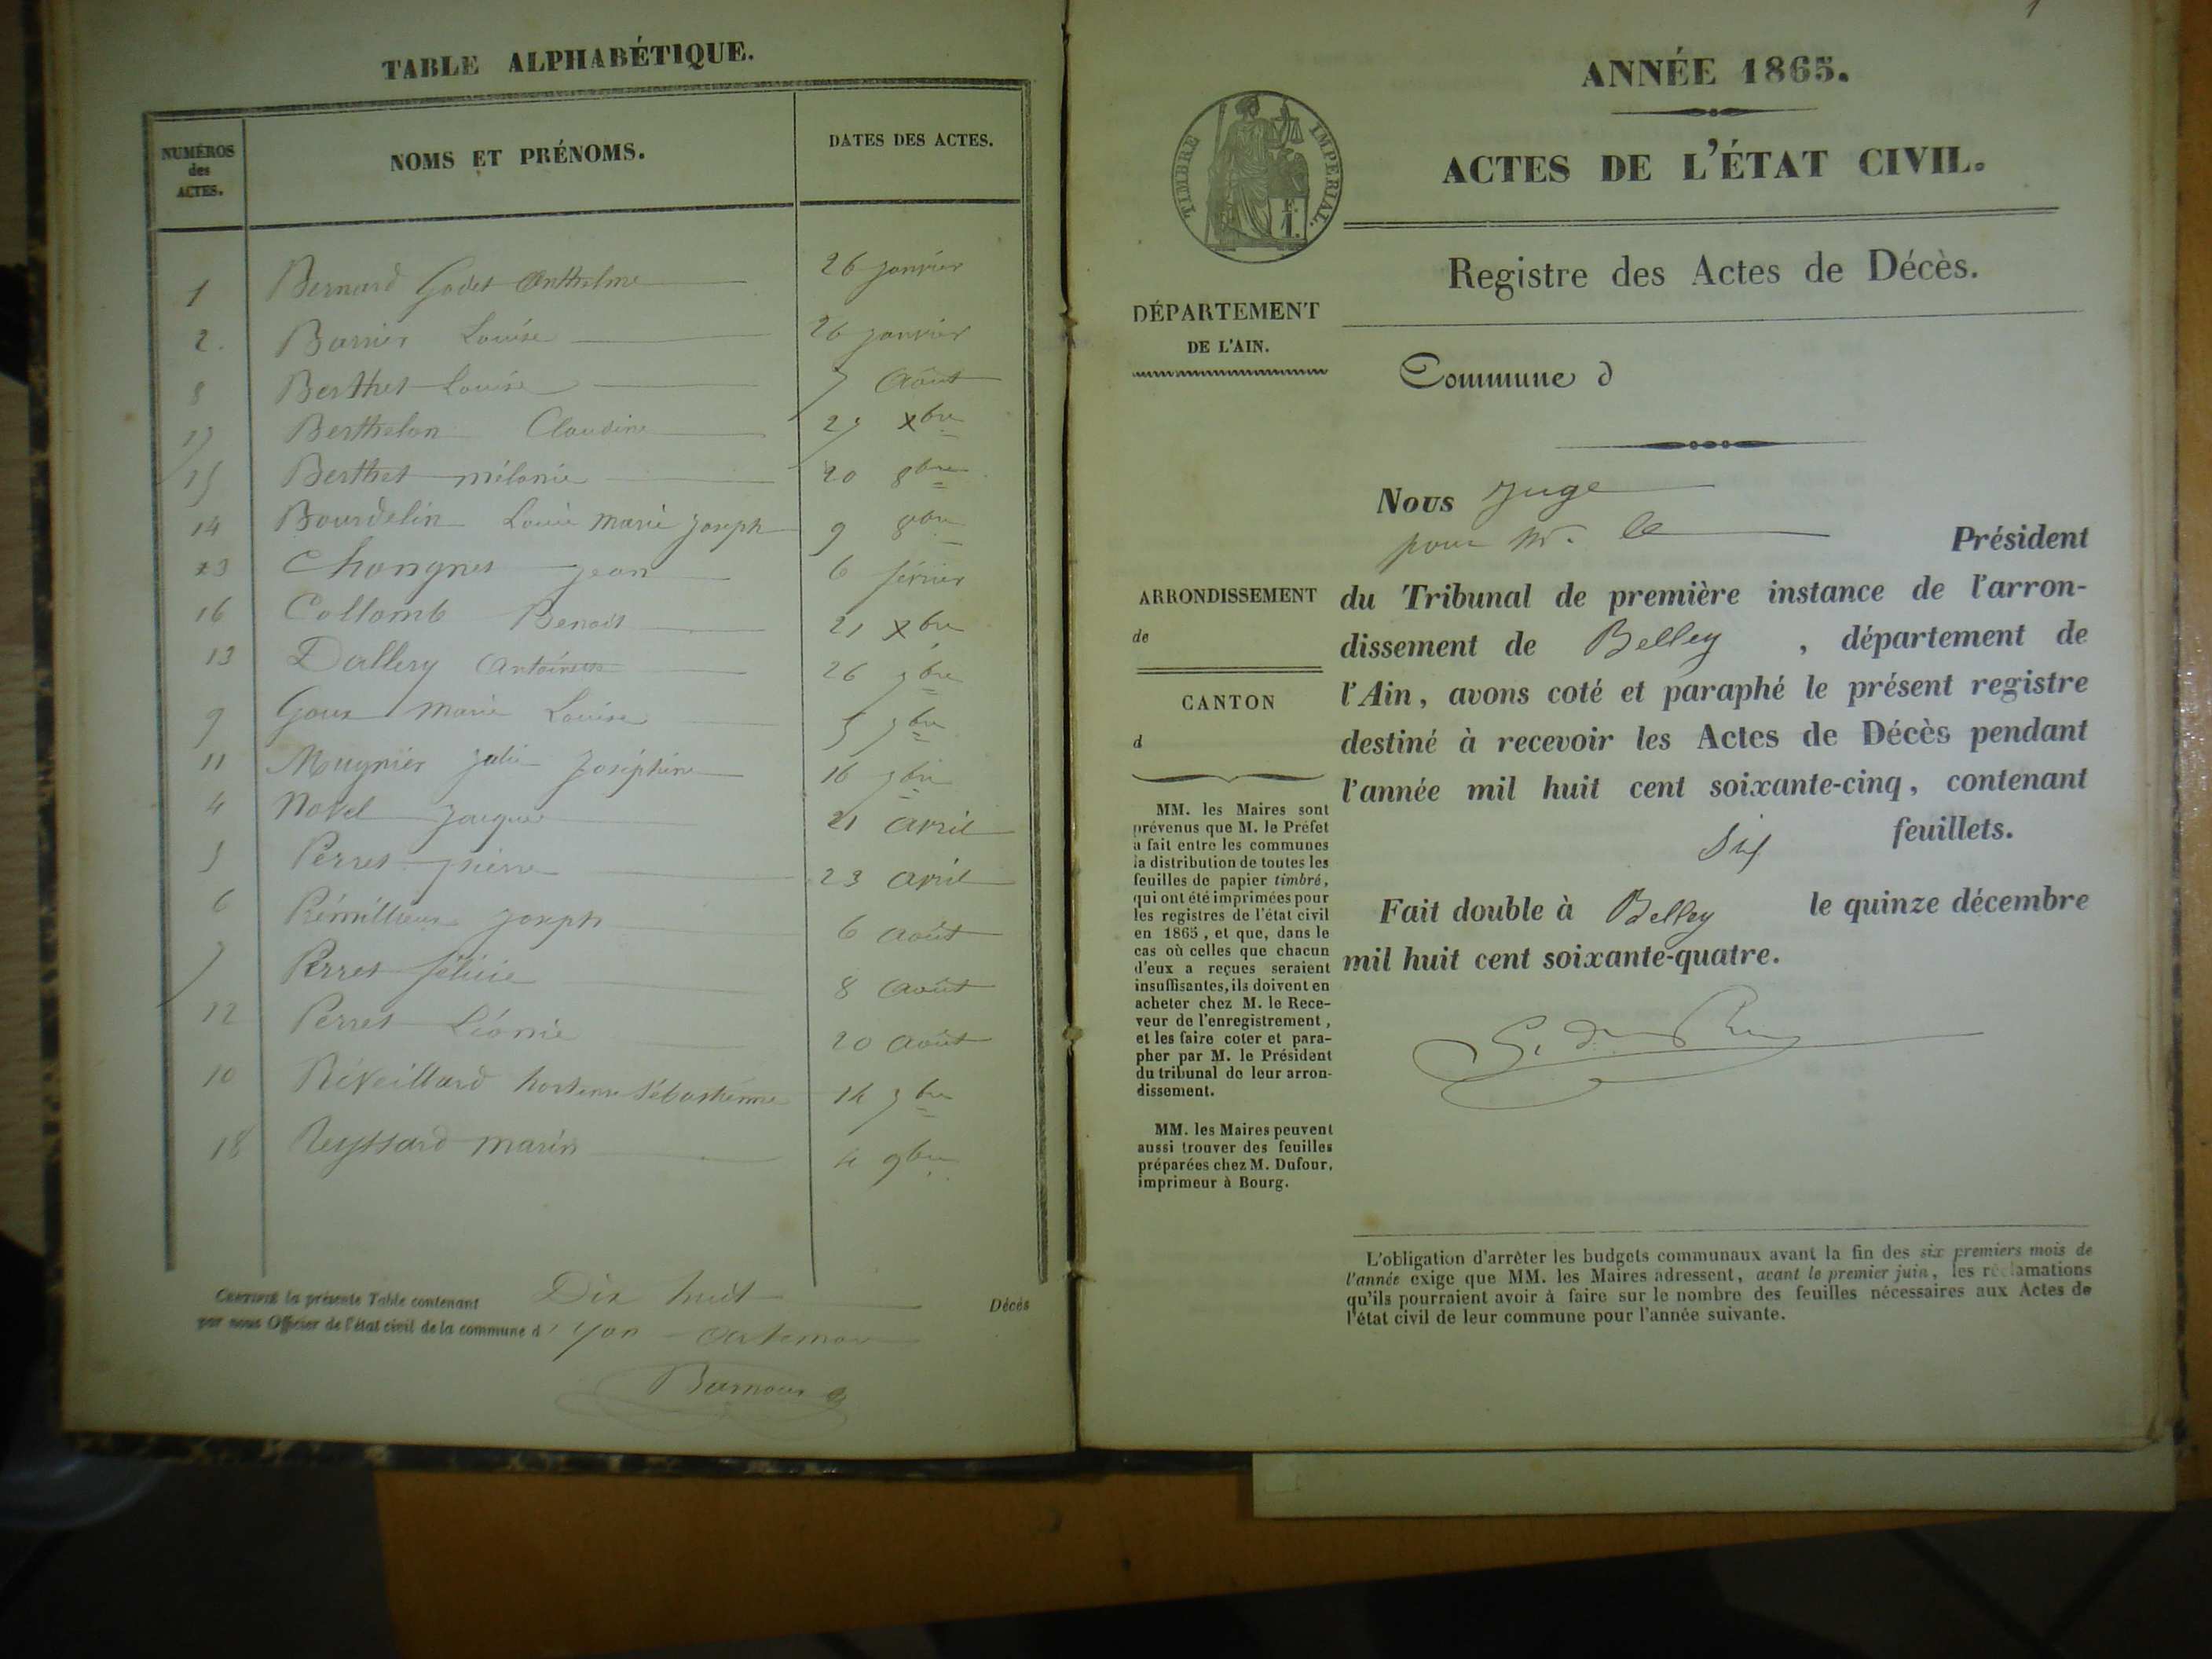 TABLE ALPHABÉTIQUE.
NUMÉROS
des
ACTES.
NOMS ET PRÉNOMS.
DATES DES ACTES.
1 Bernard Godet Anthelme 26 janvier
2. Barrier Louise 26 janvier
8 Berthet Louise 7 Août
17 Berthelon Claudine 27 Xbre
15 Berthet mélanie 20 8bre
14 Bourdelin Louis marie joseph 9 8bre
23 Chongnet jean 6 février
16 Collomb Benoit 21 Xbre
13 Dallery 26 9bre
9 Goux marie Louise 5 7bre
11 Mugnier julie joséphine 16 7bre
4 Novel jacques 21 avril
5 Perret pierre 23 avril
6 Rémilleux joseph 6 août
7 Perret félicie 8 août
12 Perret Léonie 20 août
10 Réveillard hortense Sébastienne 14 7bre
18 Reyssard marin 4 9bre
CERTIFIÉ la présente Table contenant Dix huit Décès
par nous Officier de l'état civil de la commune d' Yon Artemare
1
ANNÉE 1865.
ACTES DE L'ÉTAT CIVIL.
TIMBRE IMPÉRIAL.
Registre des Actes de Décès.
DÉPARTEMENT
DE L'AIN.
Commune d
Nous juge
pour Mr. le Président
ARRONDISSEMENT
de
CANTON
d
du Tribunal de première instance de l'arron-
dissement de Belley , département de
l'Ain, avons coté et paraphé le présent registre
destiné à recevoir les Actes de Décès pendant
l'année mil huit cent soixante-cinq, contenant
six feuillets.
Fait double à Belley le quinze décembre
mil huit cent soixante-quatre.
MM. les Maires sont
prévenus que M. le Préfet
a fait entre les communes
la distribution de toutes les
feuilles de papier timbré,
qui ont été imprimées pour
les registres de l'état civil
en 1865, et que, dans le
cas où celles que chacun
d'eux a reçues seraient
insuffisantes, ils doivent en
acheter chez M. le Rece-
veur de l'enregistrement,
et les faire coter et para-
pher par M. le Président
du tribunal de leur arron-
dissement.
MM. les Maires peuvent
aussi trouver des feuilles
préparées chez M. Dufour,
imprimeur à Bourg.
L'obligation d'arrêter les budgets communaux avant la fin des six premiers mois de
l'année exige que MM. les Maires adressent, avant le premier juin, les réclamations
qu'ils pourraient avoir à faire sur le nombre des feuilles nécessaires aux Actes de
l'état civil de leur commune pour l'année suivante.